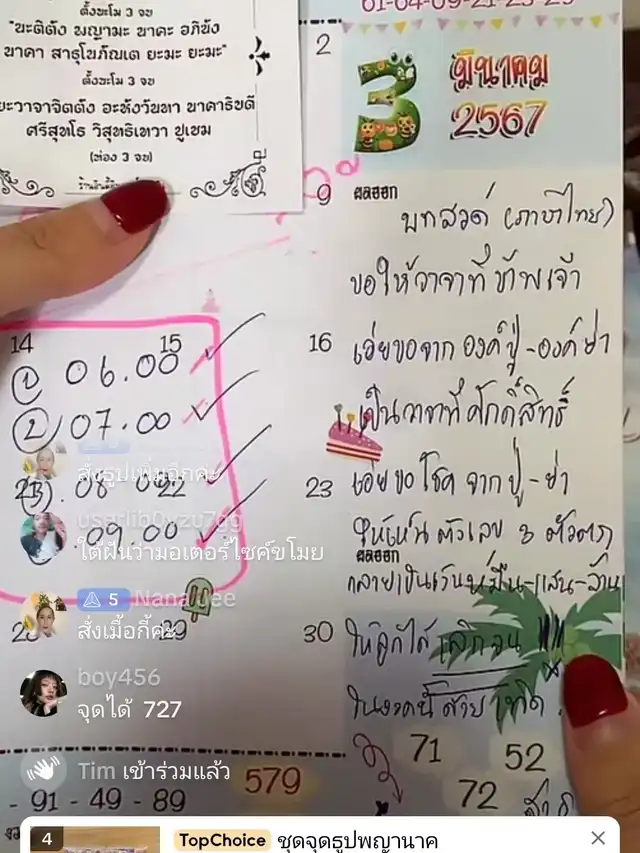 61-04-09-21-23-29
ตั้งนะโม 3 จบ
"นะติตัง พญามะ นาคะ อภินัง
นาคา สาธุโนภัณเต ยะมะ ยะมะ"
ตั้งนะโม 3 จบ
ยะวาจาจิตตัง อะหังวันทา นาคาธิบดี
ศรีสุทโธ วิสุทธิเทวา ปูเชม
(ท่อง 3 จบ)
2
3
มีนาคม
2567
9
ผลออก
บทสวด (ภาษาไทย)
ขอให้วาจาที่ ข้าพเจ้า
16
เอ่ยขอจาก องค์ปู่-องค์ย่า
เป็นวาจาที่ ศักดิ์สิทธิ์
23
เอ่ยขอโชค จากปู่-ย่า
ให้เห็น ตัวเลข 3 ตัวตรง
ผลออก
กลายเป็นเงินหมื่น-แสน-ล้าน
30
ให้ลูกได้ เลิกจน
ในงวดนี้ ด้วยเทิด
14
15
① 06.00
② 07.00
22
(3). 08.00
09.00
29
สั่งธูปเพิ่มอีกคะ
ใต้ฝันว่ามอเตอร์ไซค์ขโมย
5 Nana Lee
สั่งเมื้อกี้คะ
boy456
จุดได้ 727
Tim เข้าร่วมแล้ว
579
- 91 - 49 - 89
71
52
72
4
TopChoice ชุดจุดธูปพญานาค